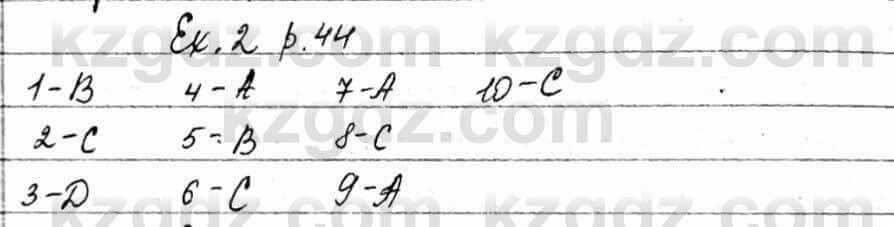 Ex. 2 p. 44
1-B 4-A 7-A 10-C
2-C 5-B 8-C
3-D 6-C 9-A
kzgdz.com kzgdz.com
kzgdz.com
kzgdz.com kzgdz.com